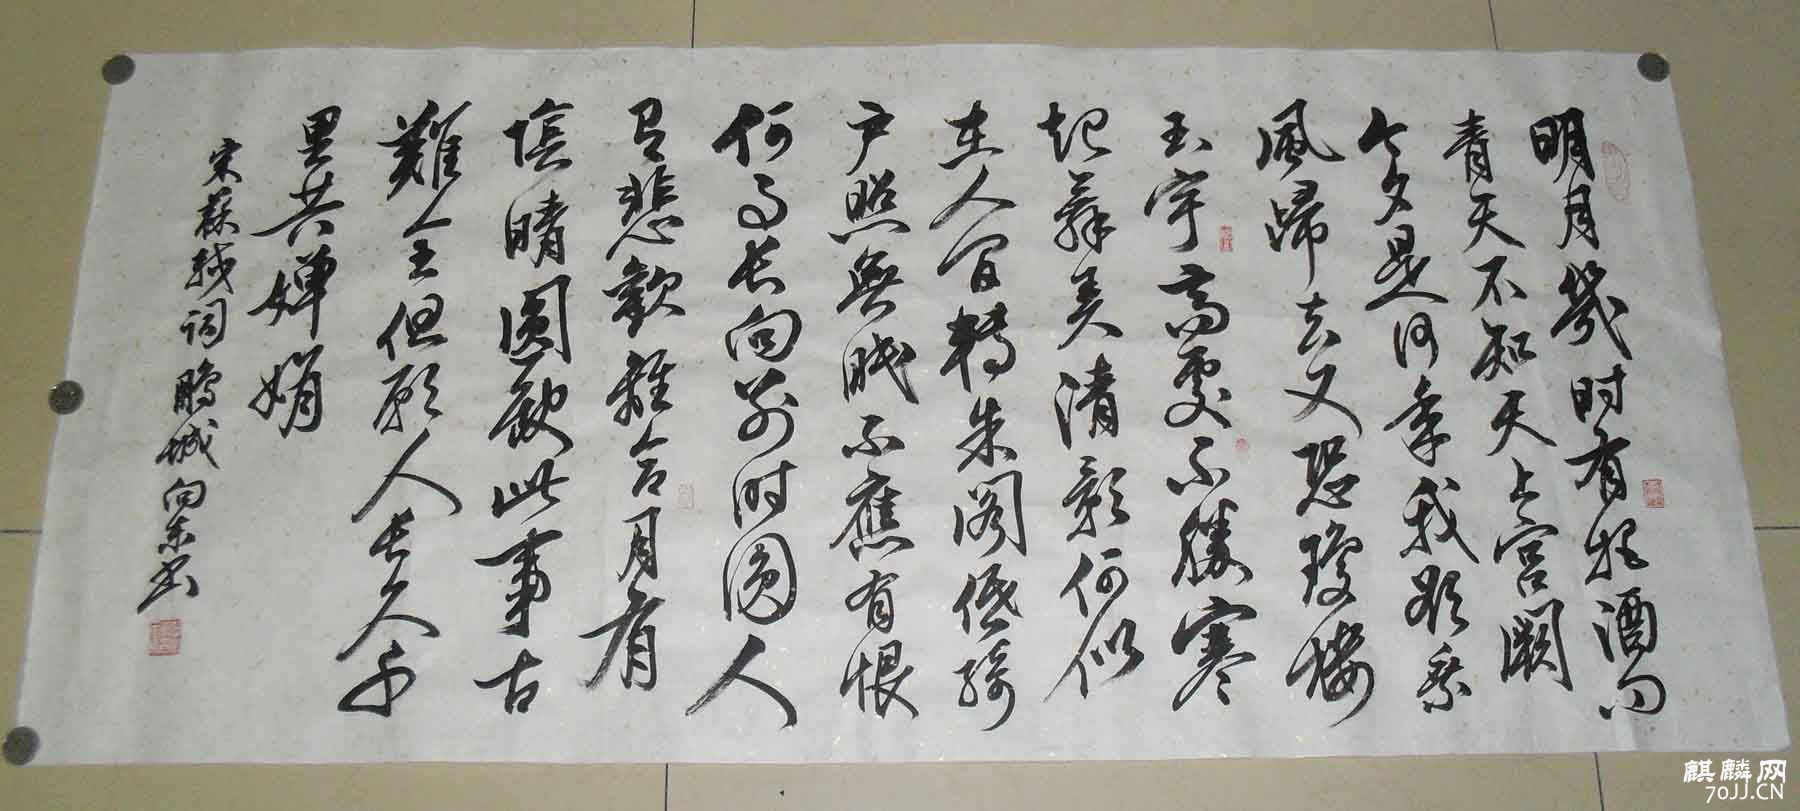 明月幾时有把酒问
青天不知天上宫阙
今夕是何年我欲乘
風歸去又恐瓊楼
玉宇高處不勝寒
起舞弄清影何似
在人间轉朱阁低绮
户照無眠不應有恨
何事长向别时圆人
有悲歡離合月有
陰晴圆缺此事古
難全但愿人长久千
里共婵娟
宋蘇轼词鹏城向东书
麒麟网
70JJ.CN